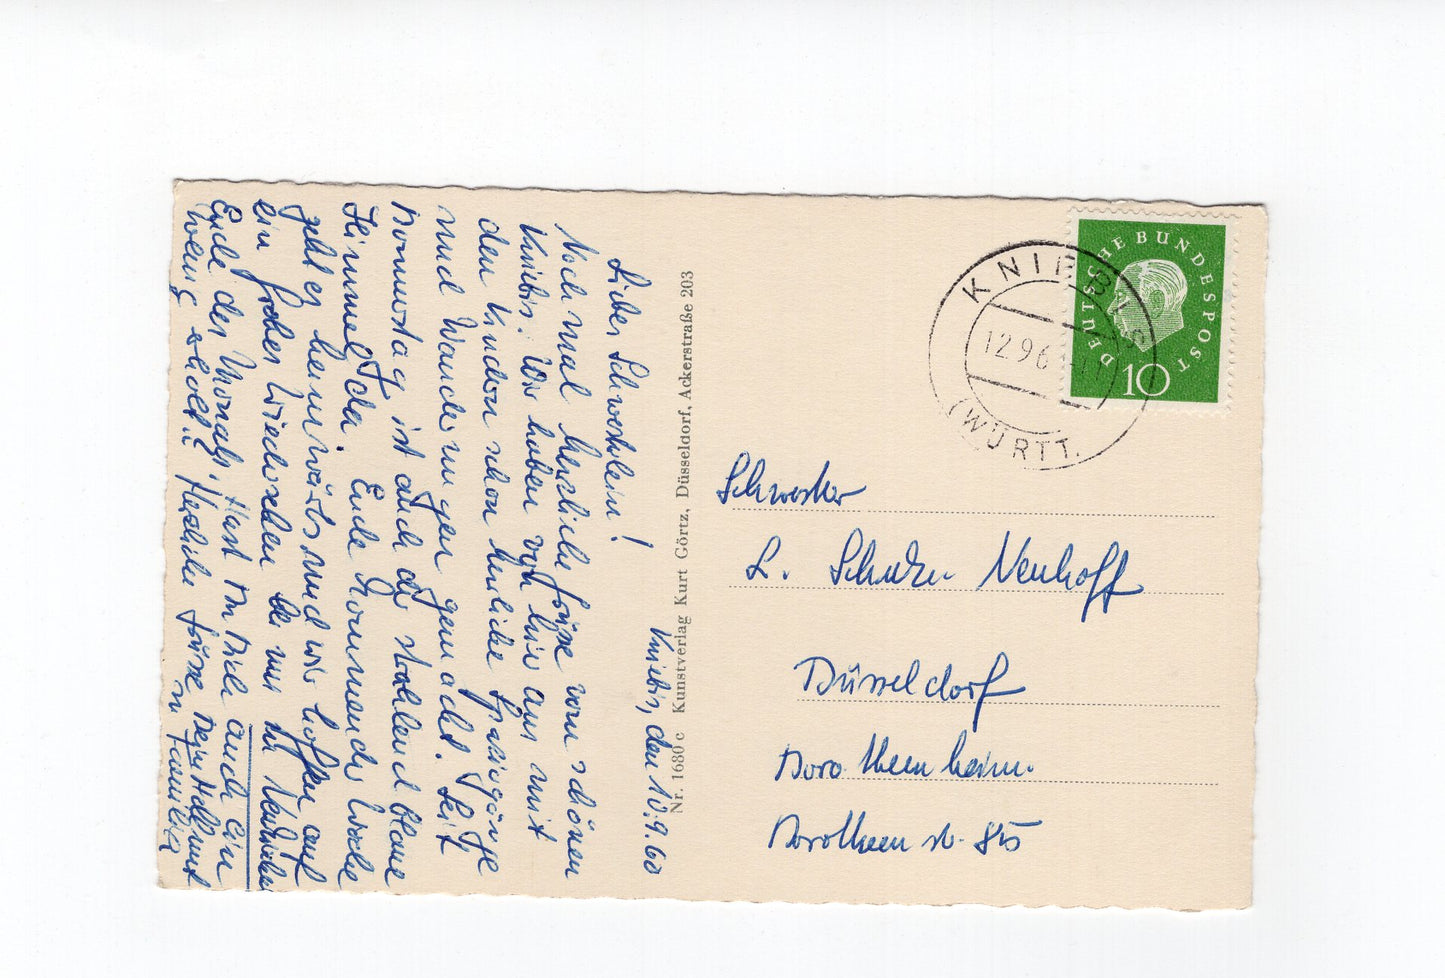 Kniebis, den 10.9.60
Liebes Schwesterlein!
Noch mal herzliche Grüsse vom schönen
Kniebis. Wir haben von hier aus mit
den Kindern schon herrliche Spaziergänge
und Wanderungen gemacht. Seit
Donnerstag ist auch der strahlend blaue
Himmel da. Ende kommende Woche
geht es heimwärts und wir hoffen auf
ein frohes Wiedersehen bei uns in
Ende des Monats. Hast Du Dich auch ein
wenig erholt? Herzliche Grüsse Dein
u. Familie
Nr. 1680 c Kunstverlag Kurt Görtz, Düsseldorf, Ackerstraße 203
DEUTSCHE BUNDESPOST
10
KNIEBIS
12.9.6
(WÜRTT.
Schwester
L. Neuhoff
Düsseldorf
Dorotheenheim.
Dorotheenstr. 85